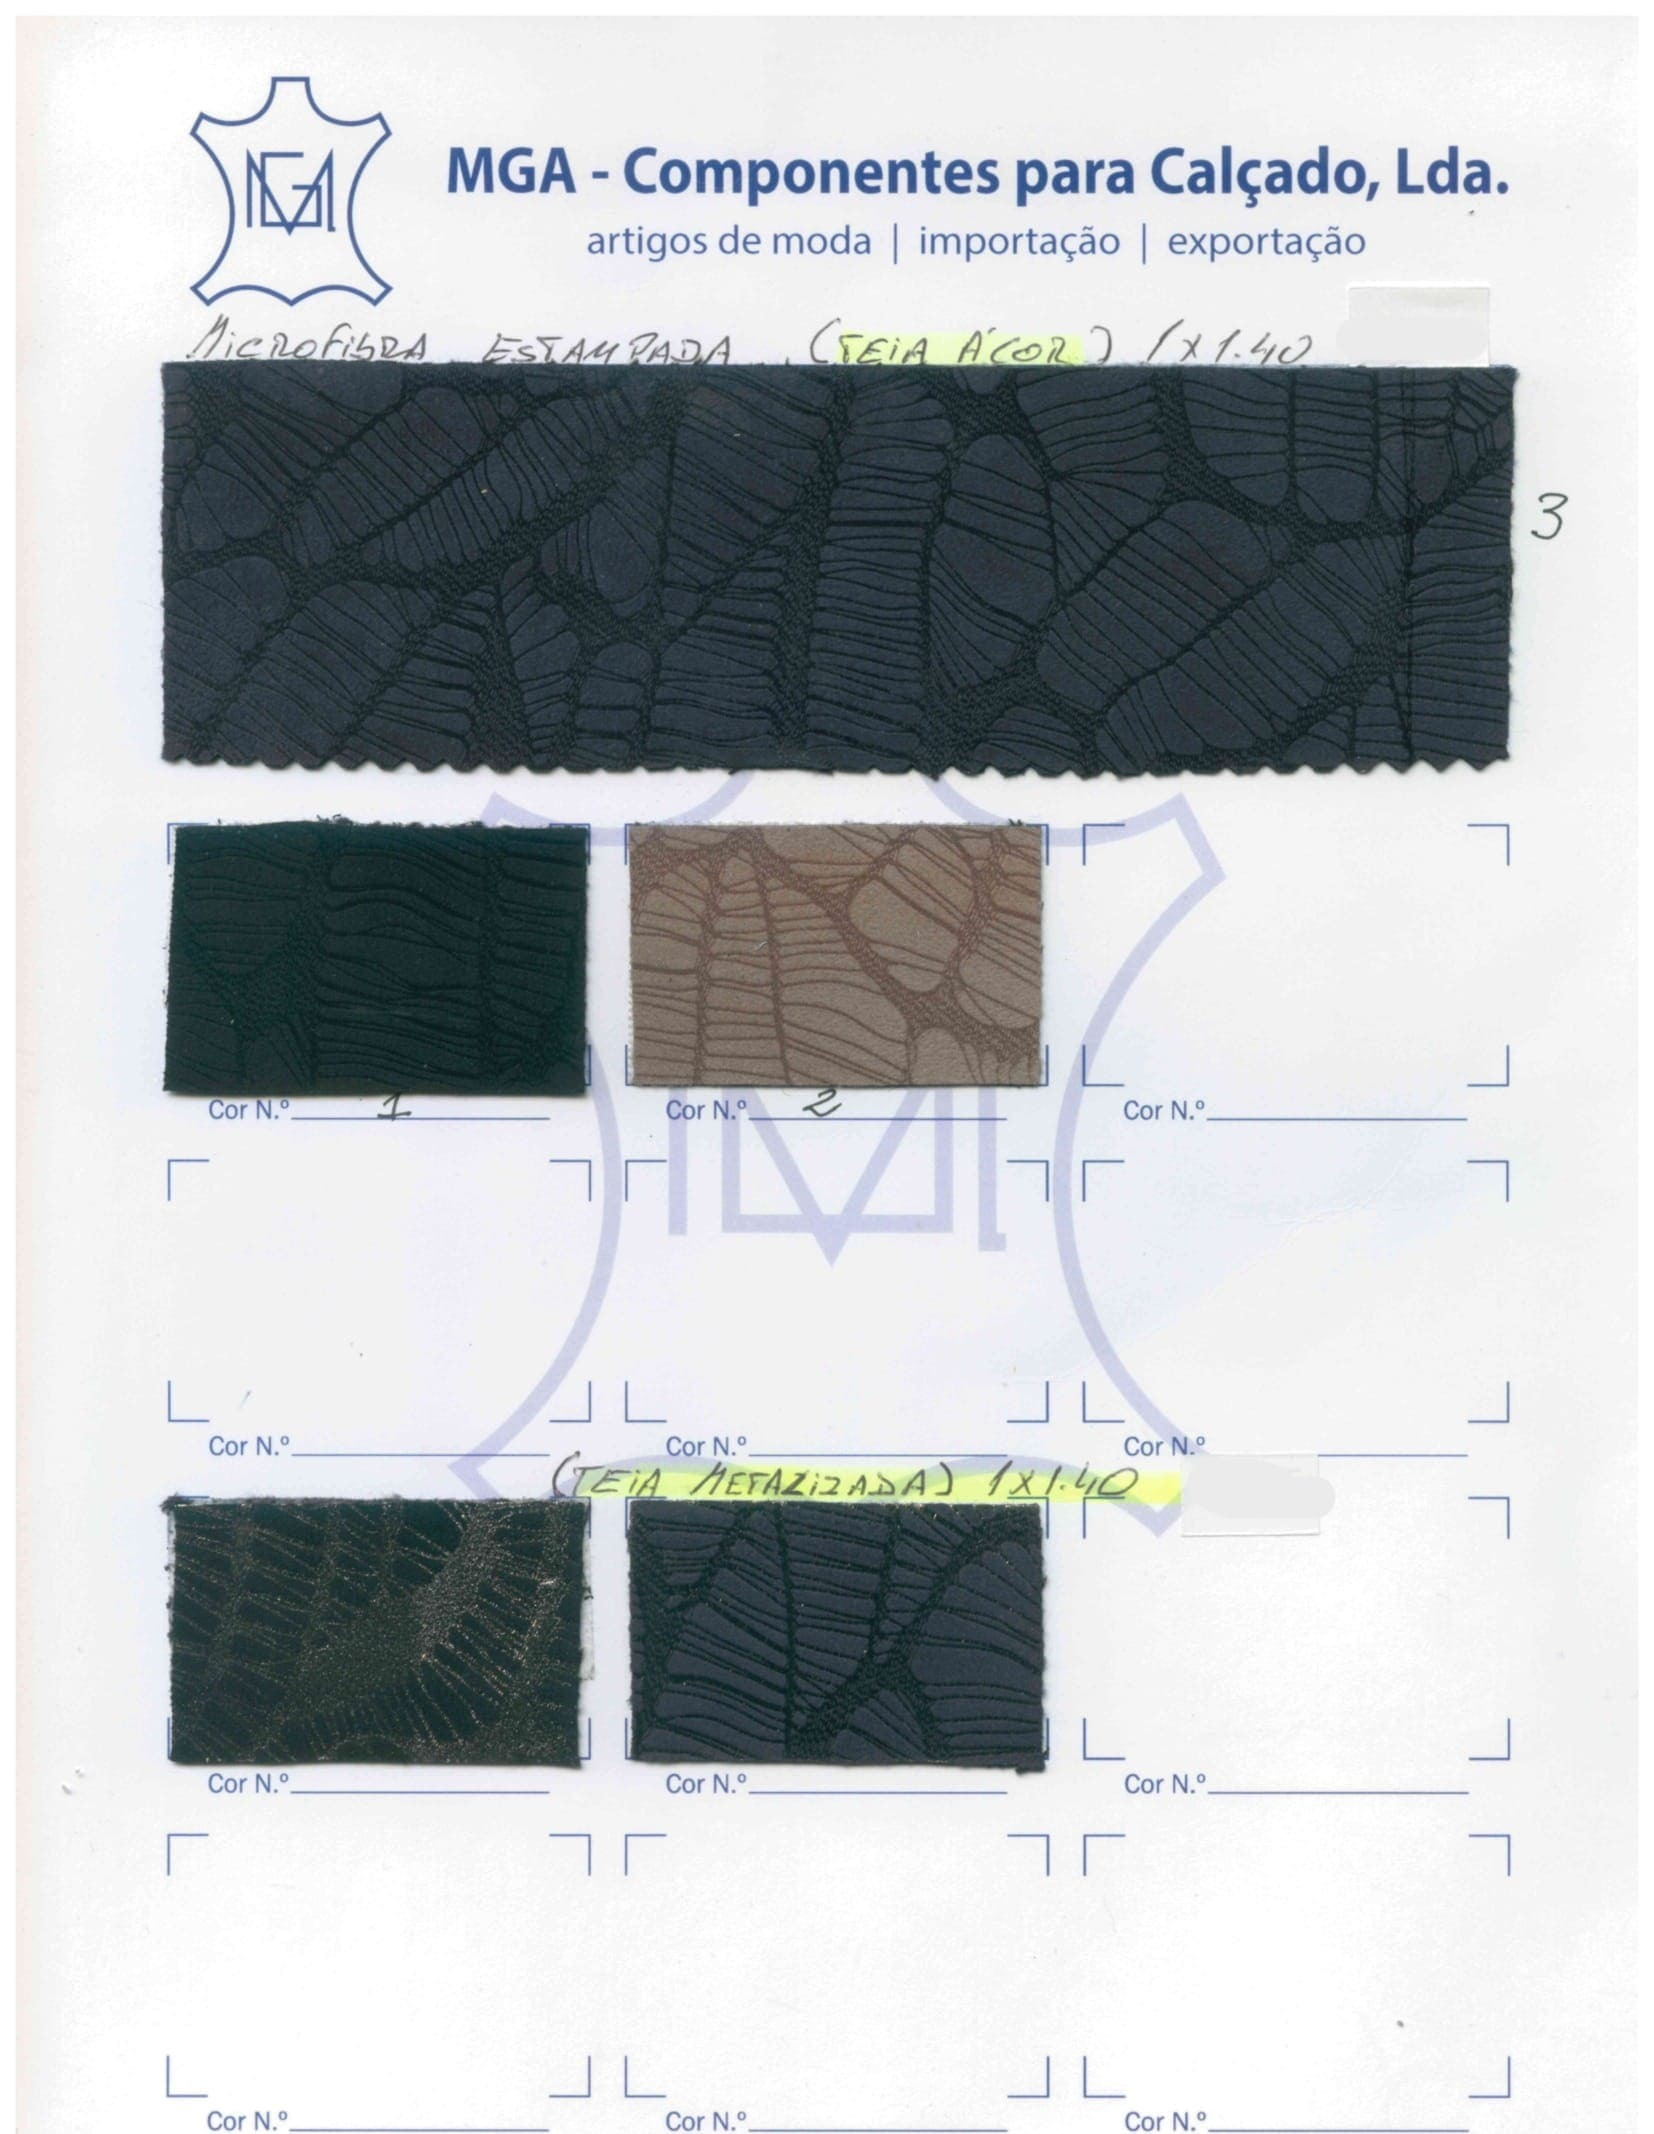 MGA - Componentes para Calçado, Lda.
artigos de moda | importação | exportação
MICROFIBRA ESTAMPADA (TEIA ÁCOR) 1 X 1.40
3
Cor N.º 1 Cor N.º 2 Cor N.º
Cor N.º Cor N.º Cor N.º
(TEIA METALIZADA) 1 X 1.40
Cor N.º Cor N.º Cor N.º
Cor N.º Cor N.º Cor N.º